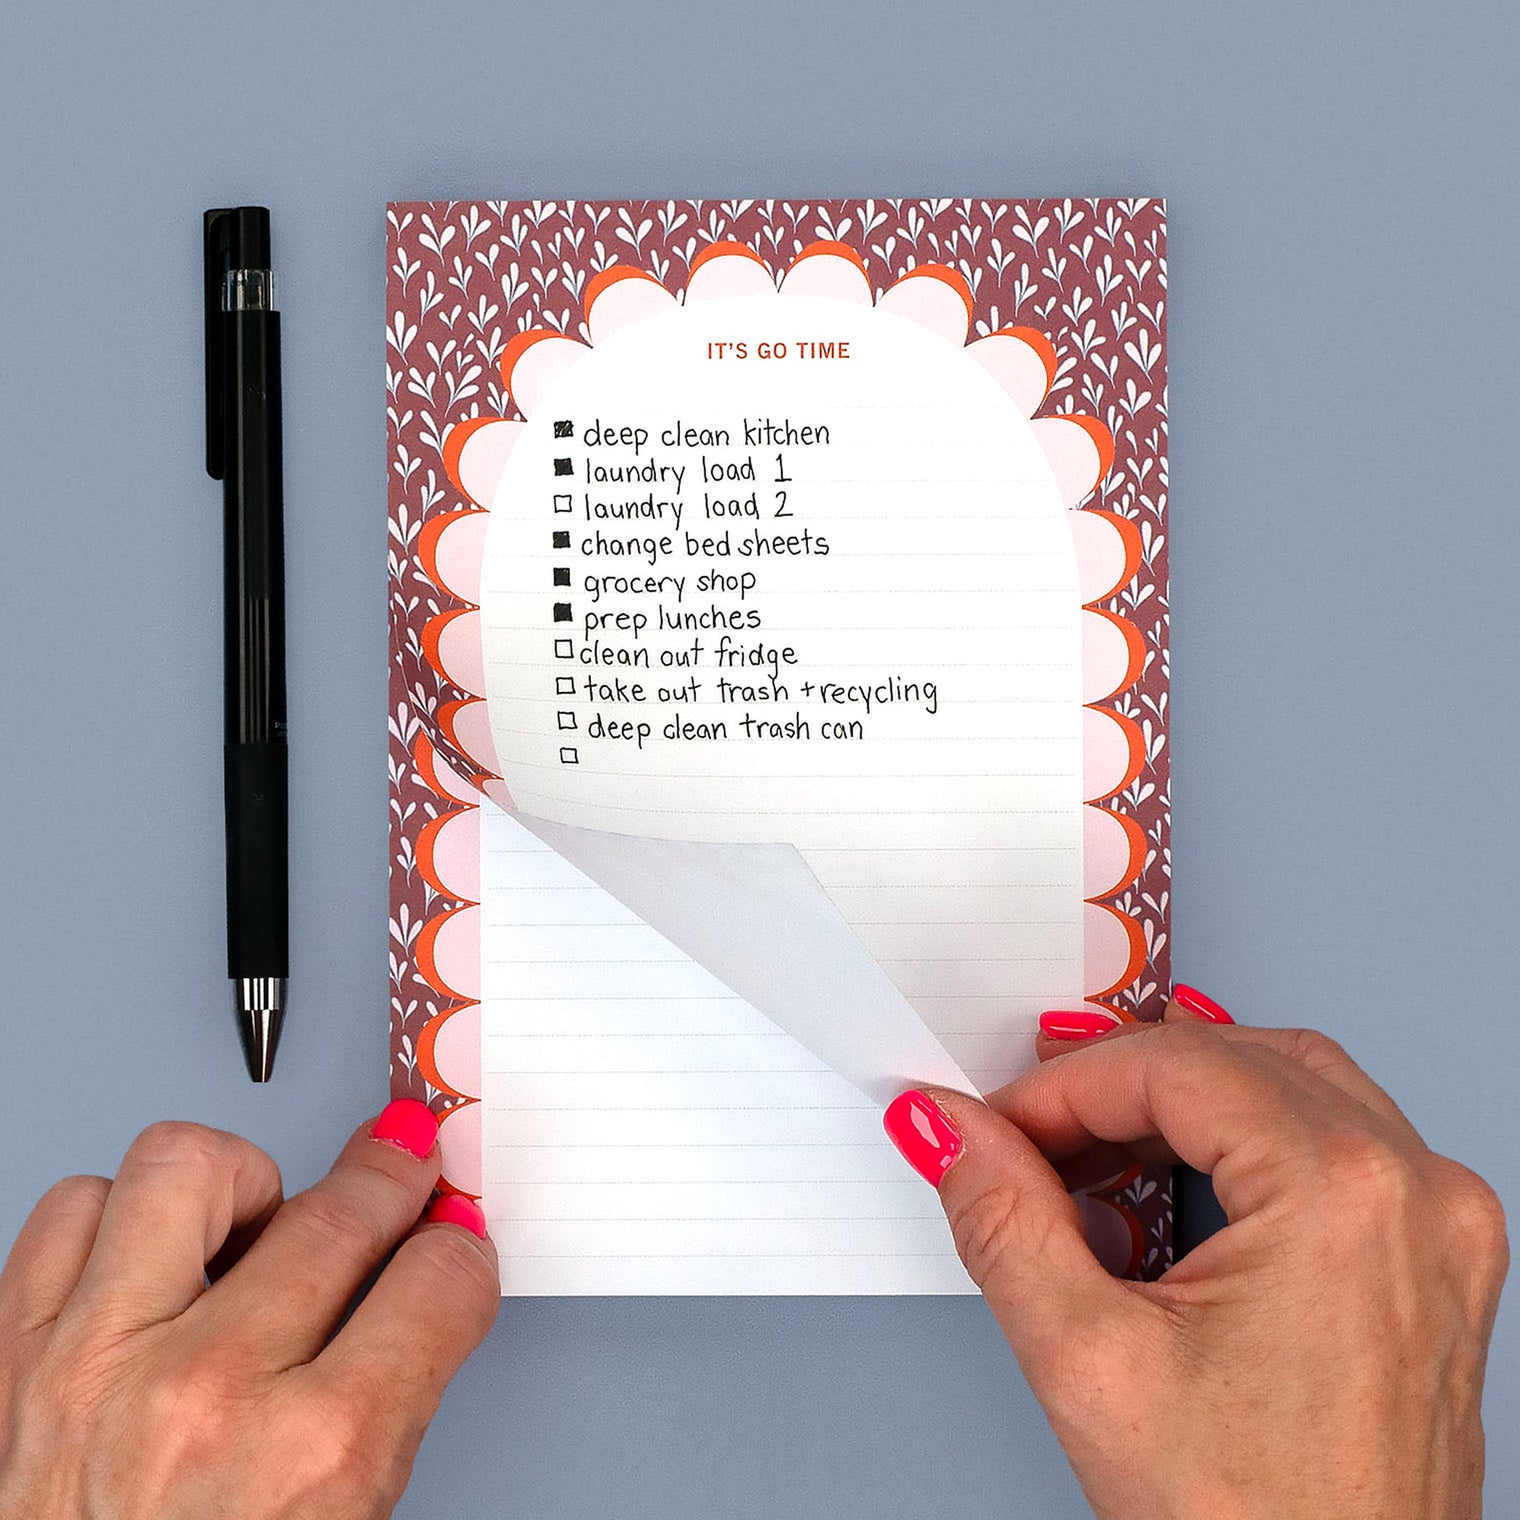 IT'S GO TIME
deep clean kitchen
laundry load 1
laundry load 2
change bed sheets
grocery shop
prep lunches
clean out fridge
take out trash + recycling
deep clean trash can